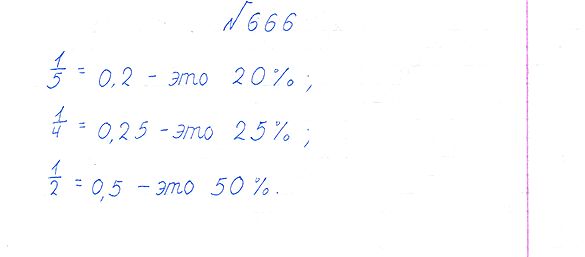 №666
1/5 = 0,2 - это 20%;
1/4 = 0,25 - это 25%;
1/2 = 0,5 - это 50%.